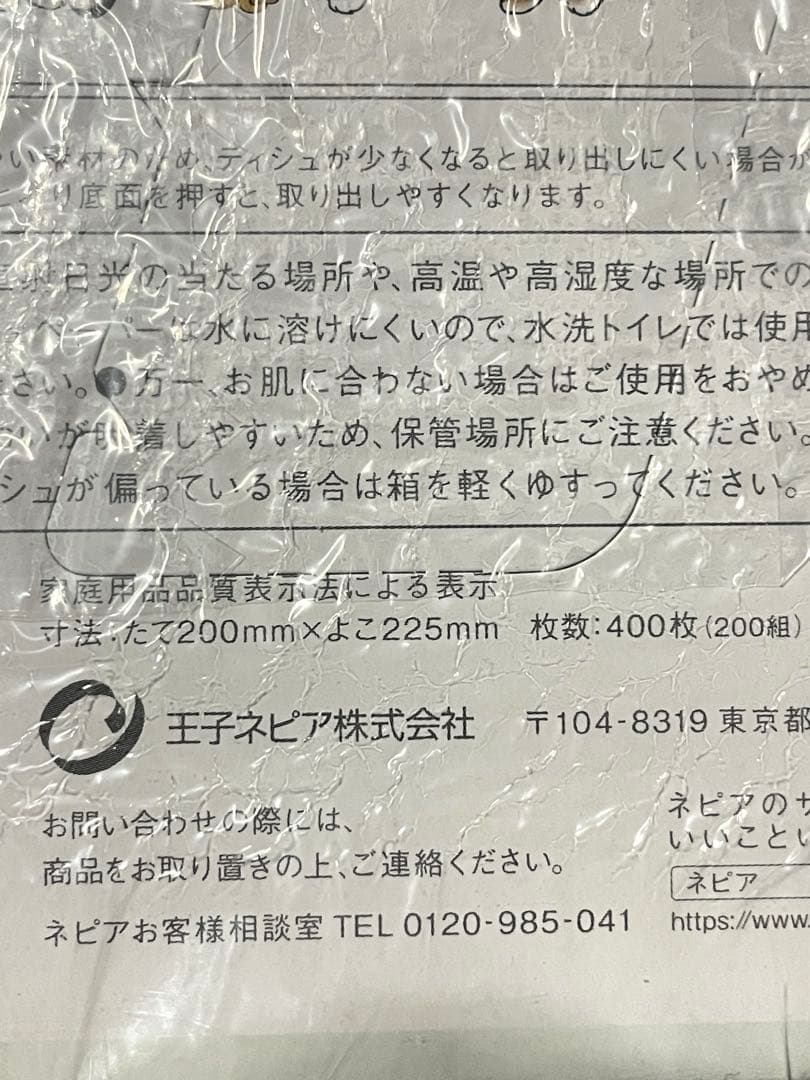 い素材のため、ティシュが少なくなると取り出しにくい場合が
り底面を押すと、取り出しやすくなります。
日光の当たる場所や、高温や高湿度な場所での
ペーパーは水に溶けにくいので、水洗トイレでは使用
さい。●万一、お肌に合わない場合はご使用をおやめ
いが吸着しやすいため、保管場所にご注意ください。
シュが偏っている場合は箱を軽くゆすってください。
家庭用品品質表示法による表示
寸法:たて200mm×よこ225mm 枚数:400枚(200組)
王子ネピア株式会社 〒104-8319 東京都
お問い合わせの際には、
商品をお取り置きの上、ご連絡ください。
ネピアお客様相談室 TEL 0120-985-041
ネピアのサ
いいことい
ネピア
https://www.